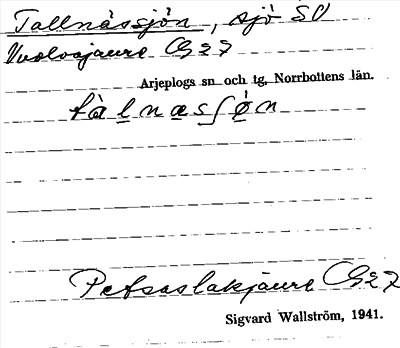 Tallnässjön, sjö SV
Vuolvojaure G27
Arjeplogs sn och tg, Norrbottens län.
tàlnæsʃø̀n
Petsaslakjaure G27
Sigvard Wallström, 1941.